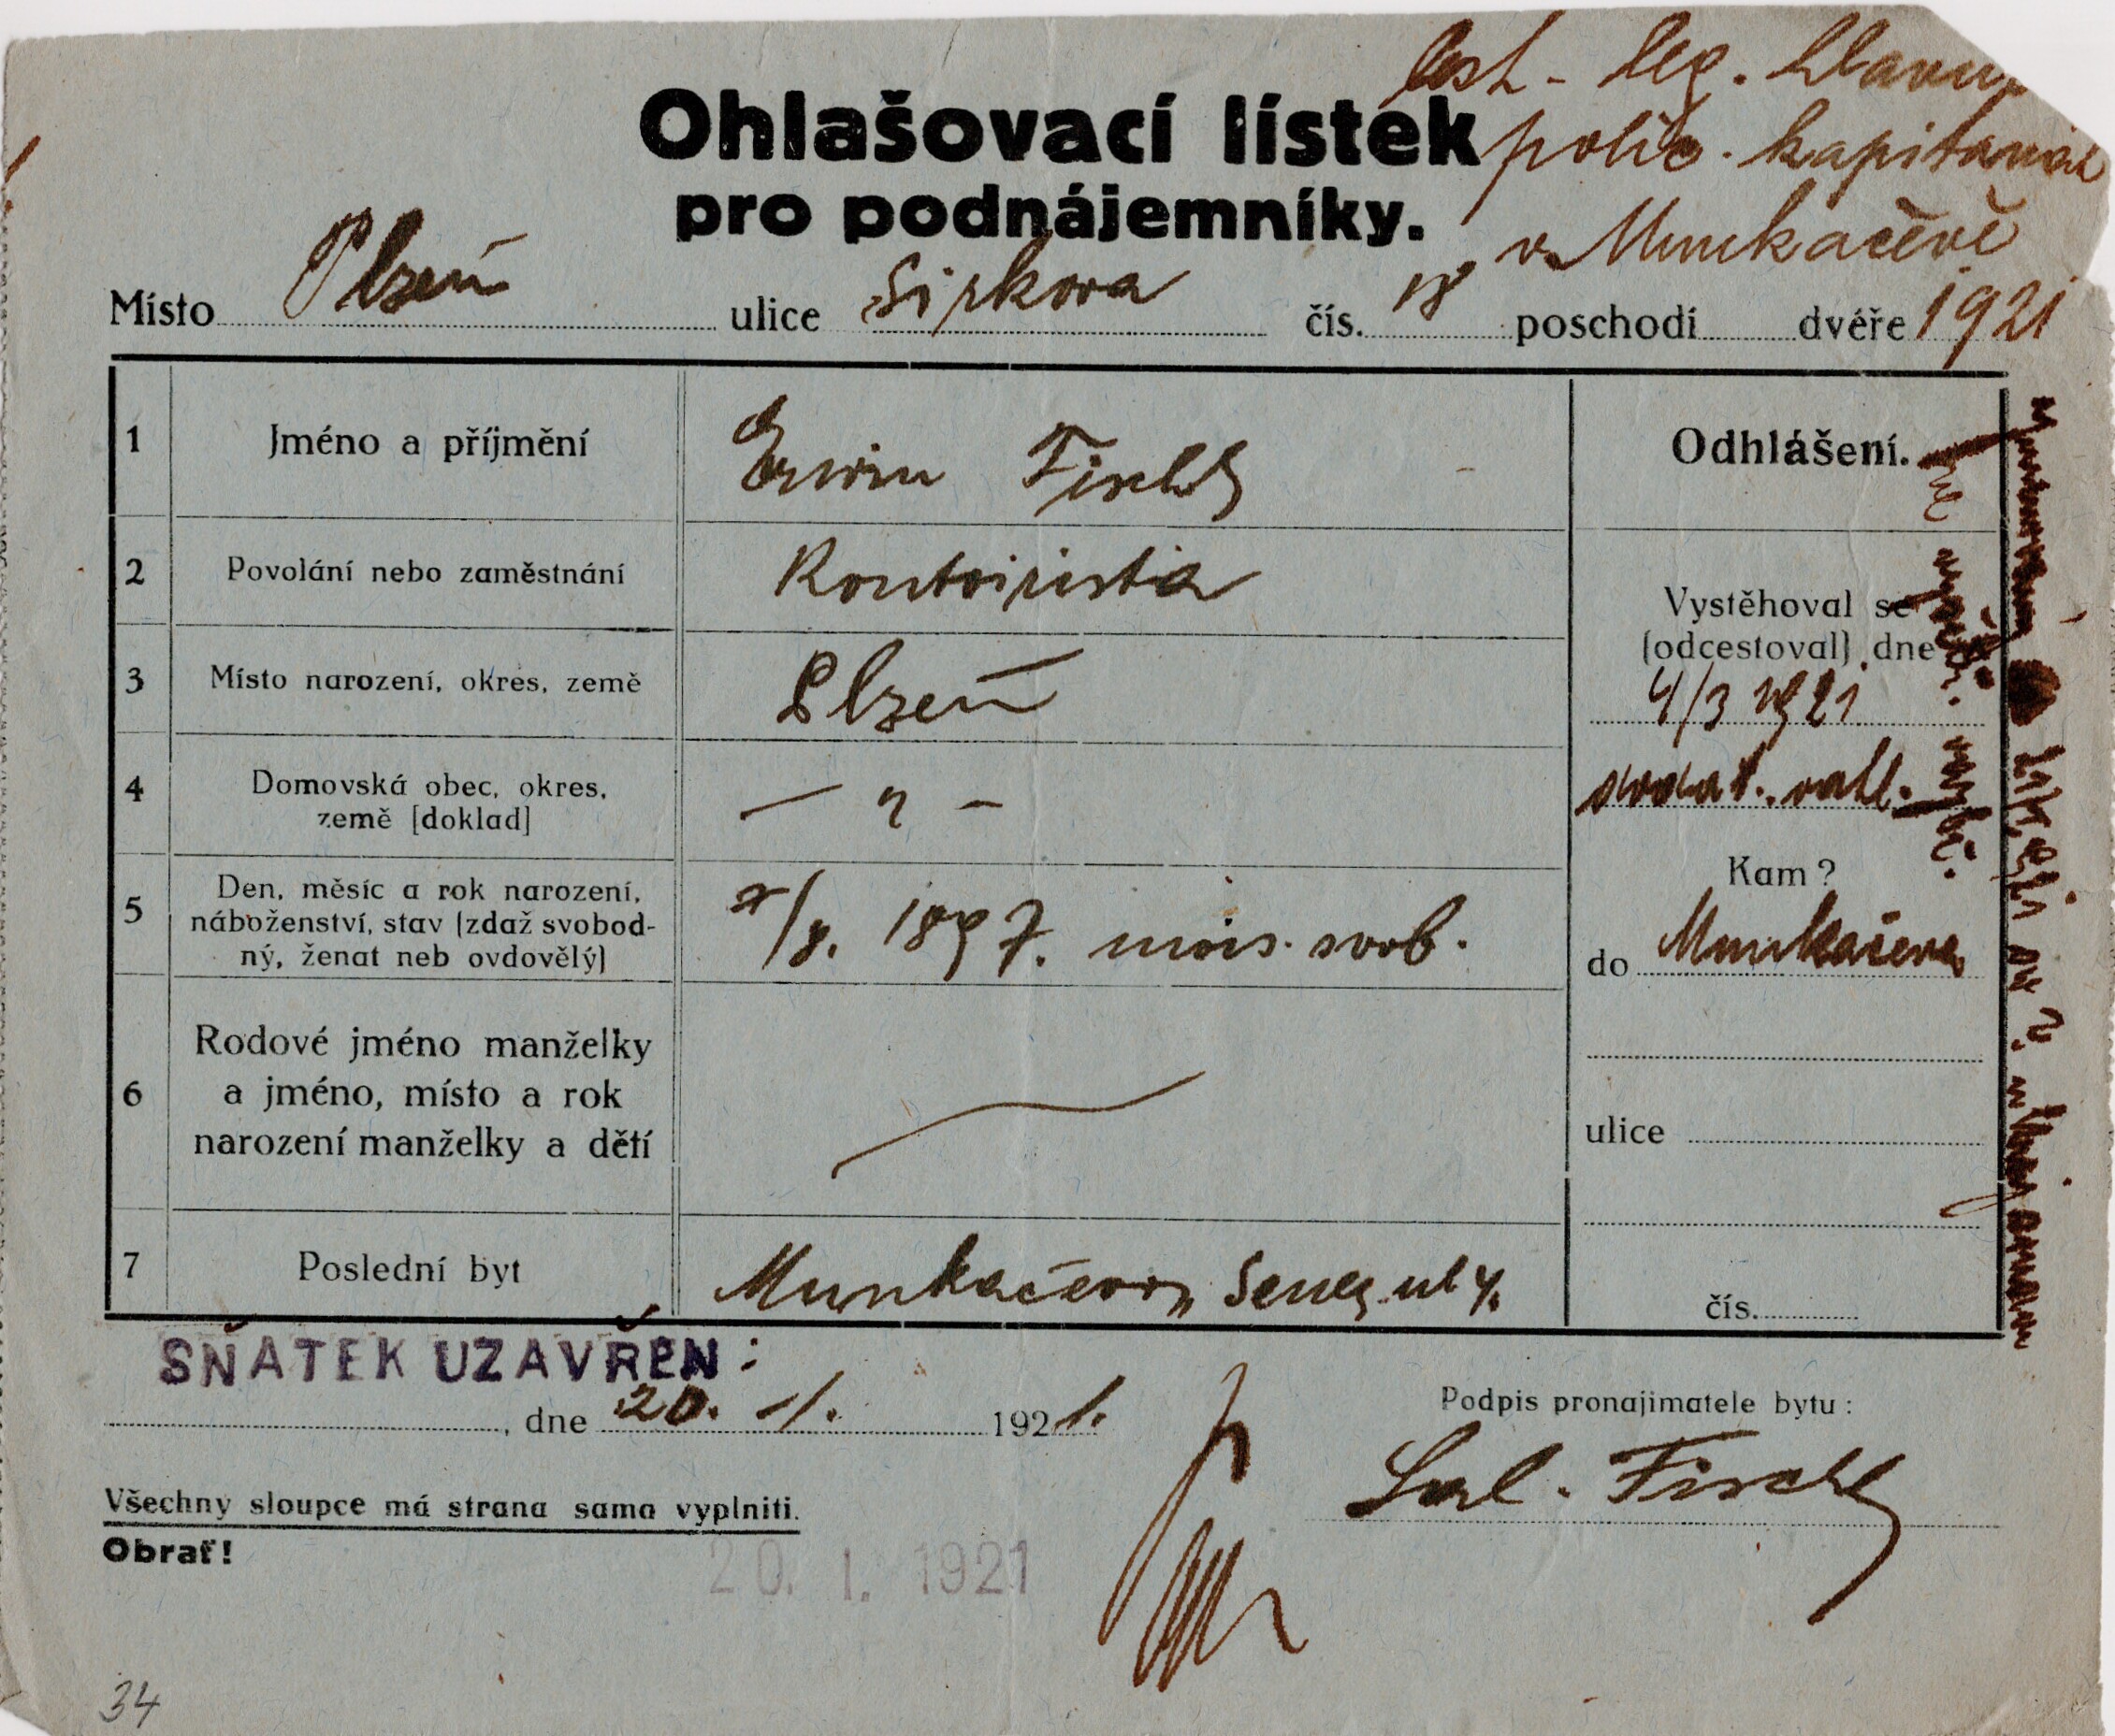 cest. leg.
Ohlašovací lístek
polic.
pro podnájemníky.
v Munkačevě
Místo Plzeň ulice Sirkova čís. 18 poschodí dvéře 1921
1 Jméno a příjmění Erwin Fischl Odhlášení.
2 Povolání nebo zaměstnání Kontoirista
Vystěhoval se
(odcestoval) dne
3 Místo narození, okres, země Plzeň
4/3 1921
4 Domovská obec, okres,
země [doklad] — " —
Kam?
5 Den, měsíc a rok narození,
náboženství, stav (zdaž svobod-
ný, ženat neb ovdovělý)
/8. 1897. mois. svob.
do Munkačeva
6 Rodové jméno manželky
a jméno, místo a rok
narození manželky a dětí
ulice
7 Poslední byt Munkačevo, ul 4.
čís.
SŇATEK UZAVŘEN:
, dne 20. 1. 1921.
Podpis pronajimatele bytu:
Sal. Fischl
Všechny sloupce má strana sama vyplniti.
Obrať!
20. I. 1921
34